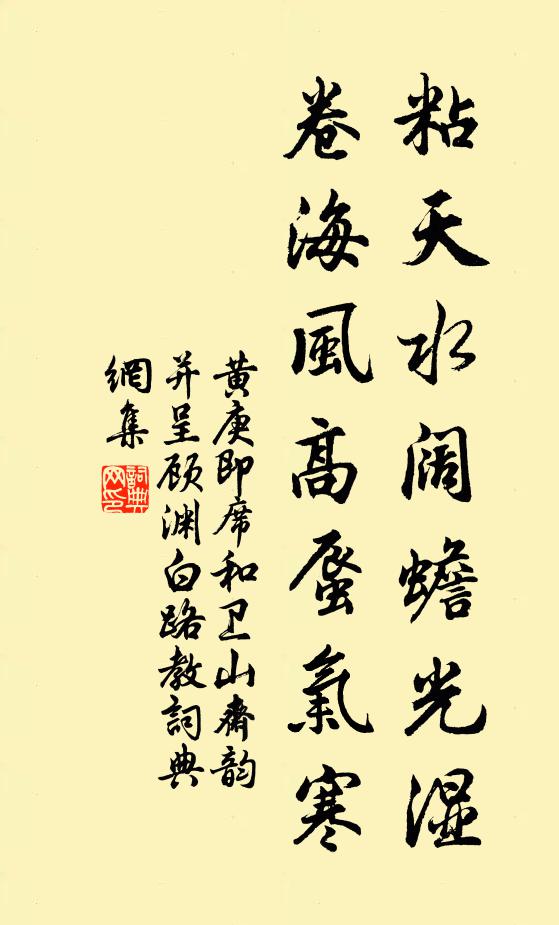 粘天水阔蟾光湿
卷海風高蜃氣寒
黄庚即席和卫山齋韵
并呈顾渊白路教詞典
網集
詞典網印